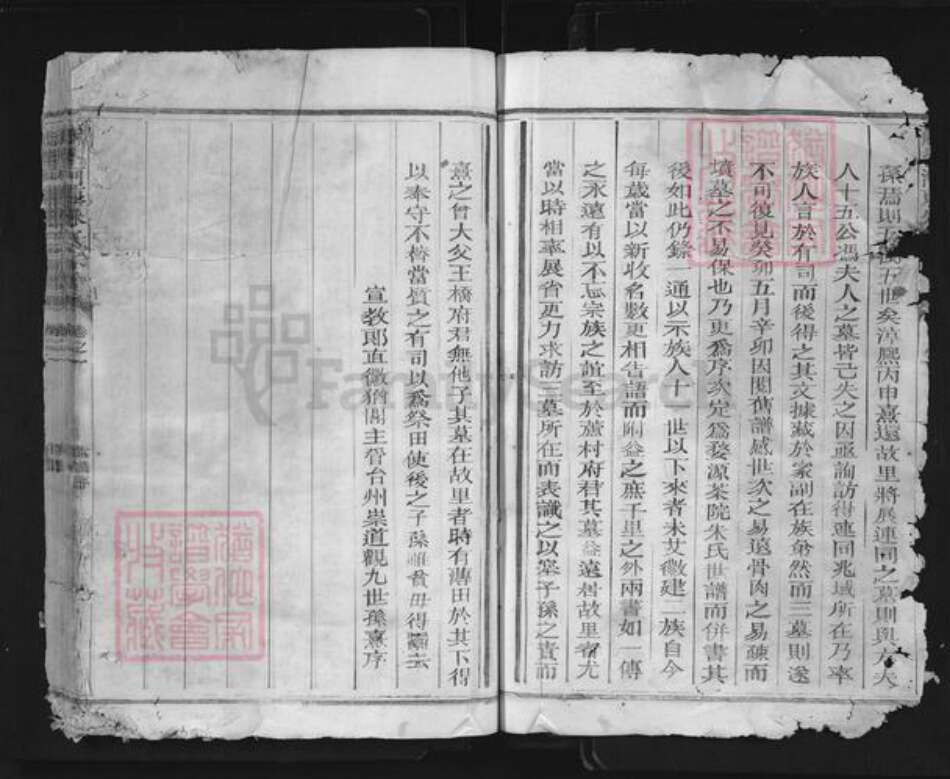 孫焉則
五世矣淳熙丙申熹還故里將展連同之墓則與方夫
人十五公馮夫人之墓皆已失之因亟詢訪得連同兆域所在乃率
族人言於有司而後得之其文據藏於家副在族弟然而三墓則遂
不可復見癸卯五月辛卯因閱舊譜感世次之易遠骨肉之易疎而
墳墓之不易保也乃更爲序次定爲婺源茶院朱氏世譜而併書其
後如此仍錄一通以示族人十一世以下來者未艾徽建二族自今
每歲當以新收名數更相告語而附益之庶千里之外兩書如一傳
之永遠有以不忘宗族之誼至於蘆村府君其墓益遠居故里者尤
當以時相率展省更力求訪三墓所在而表識之以塞子孫之責而
熹之曾大父王橋府君無他子其墓在故里者時有薄田於其下得
以奉守不替當質之有司以爲祭田使後之子孫雖貧毋得鬻云
宣教郎直徽猶閣主管台州崇道觀九世孫熹序
FamilySearch